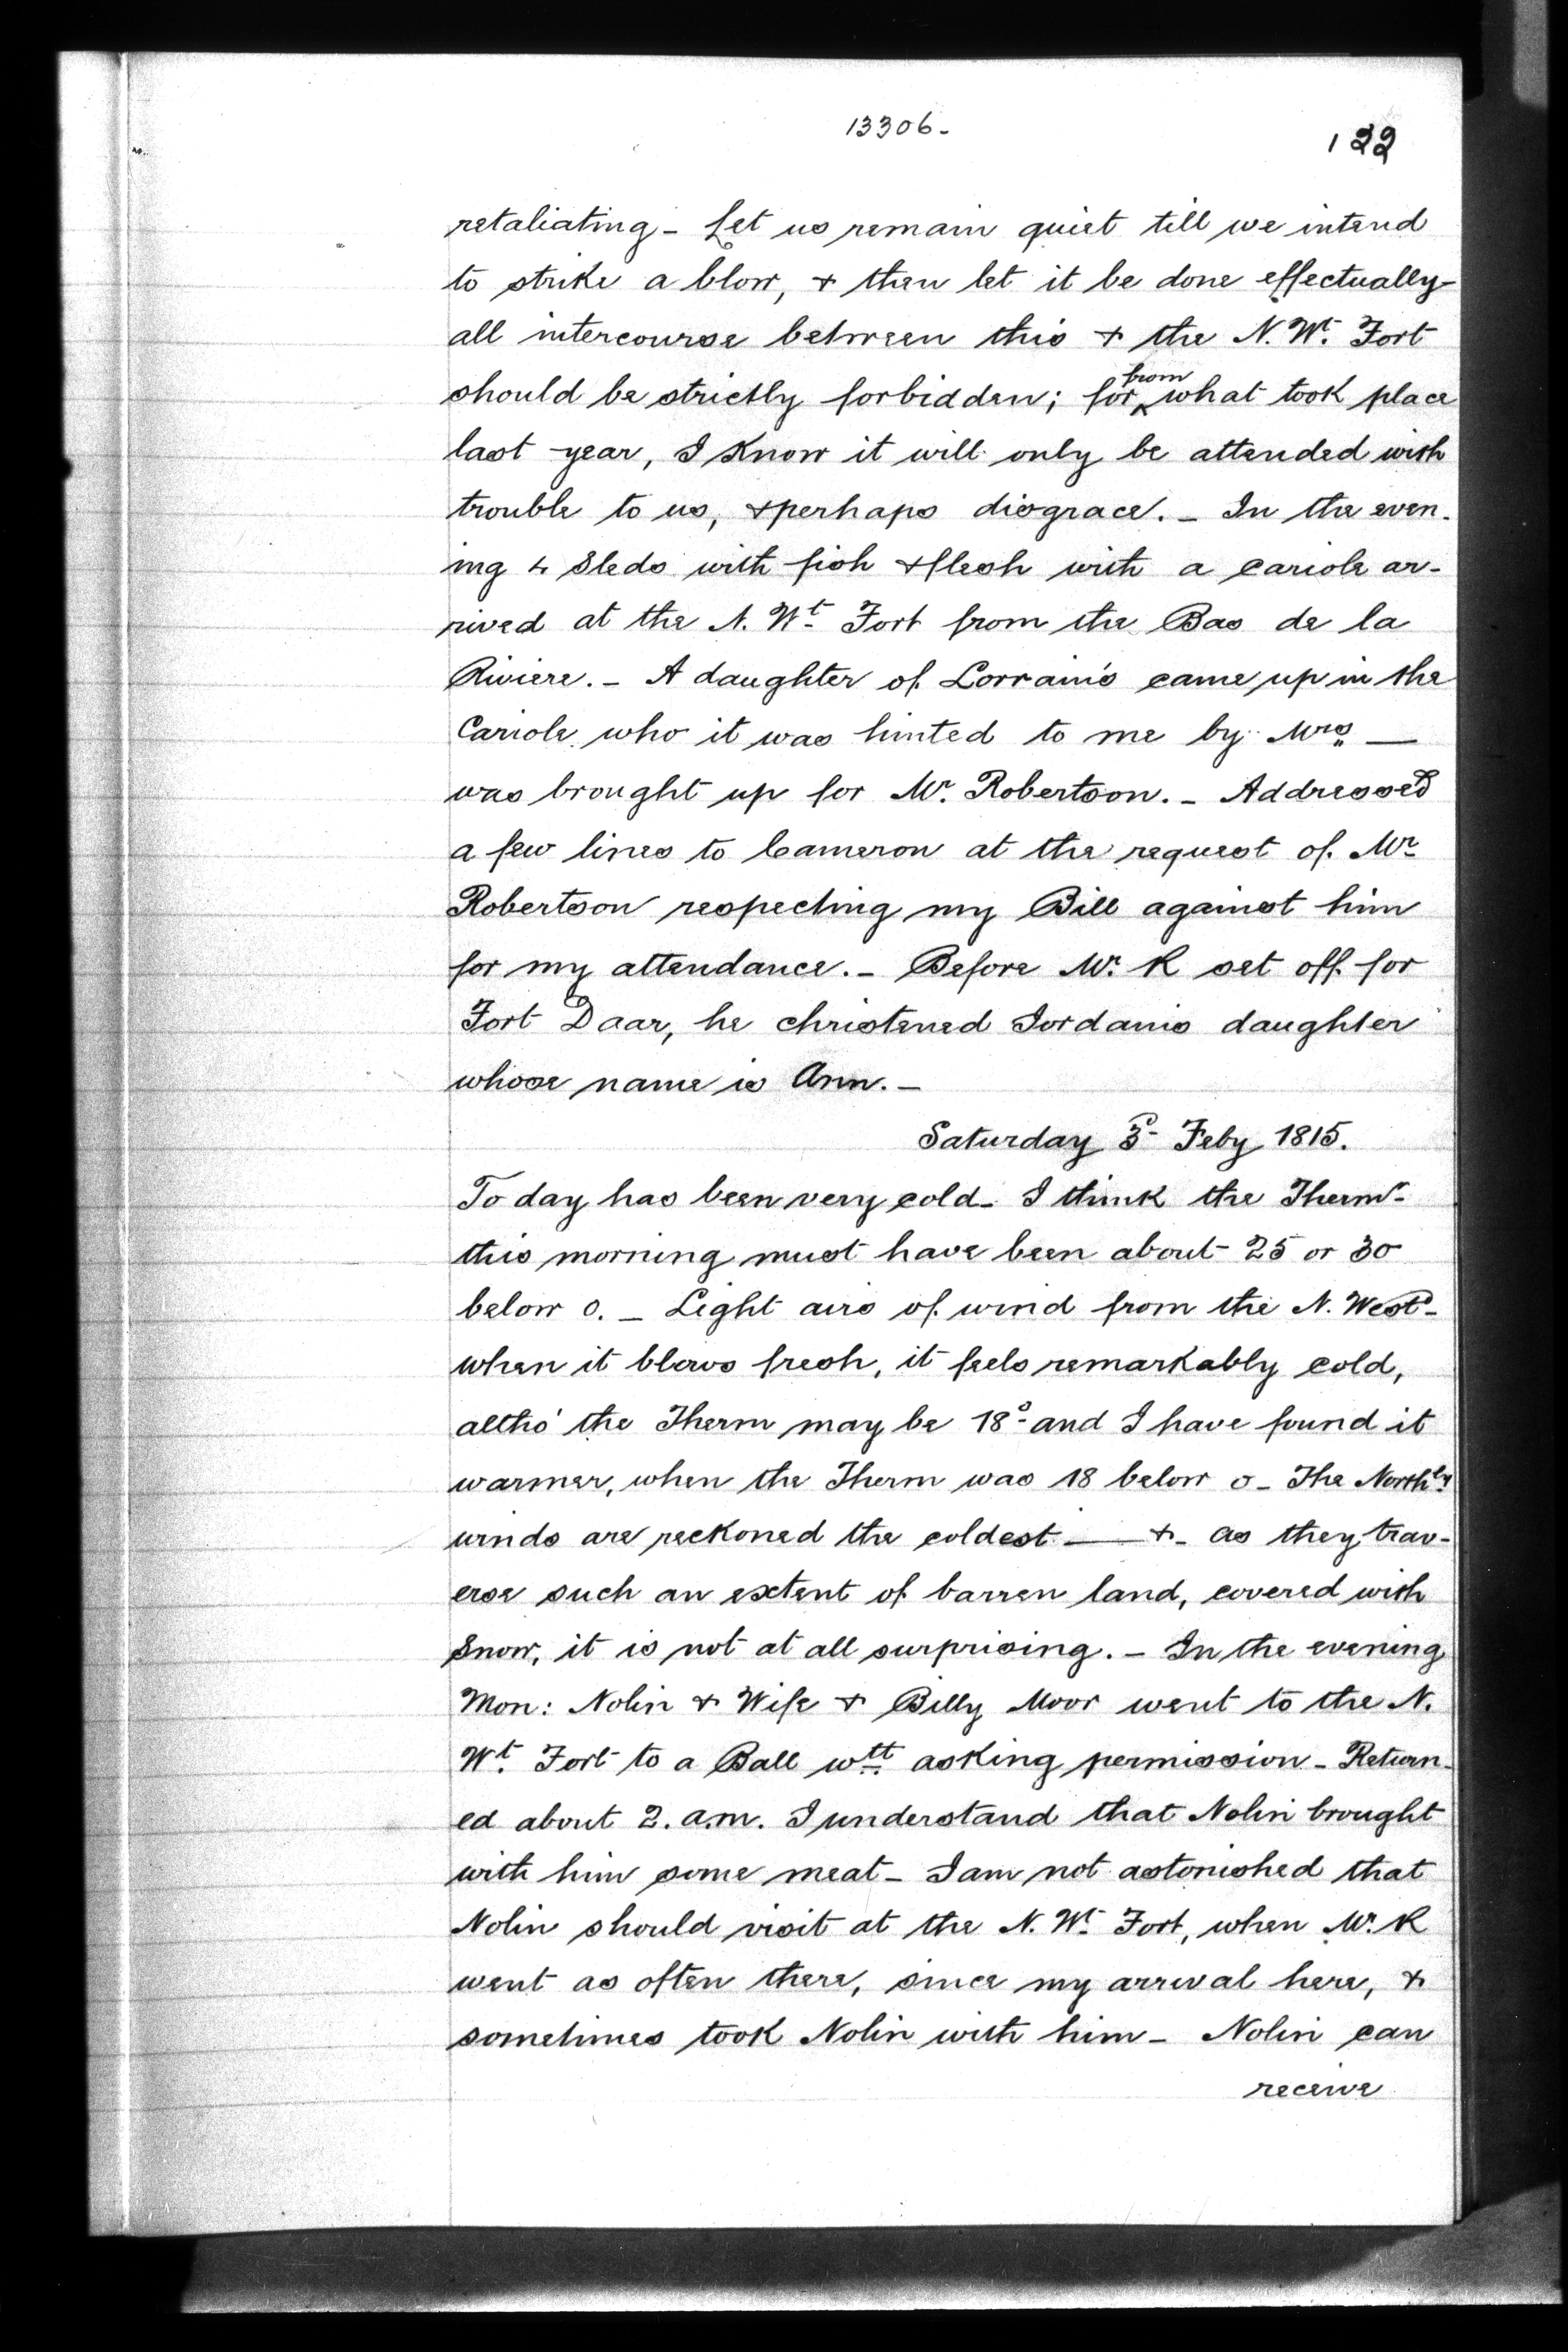 13306-
122
retaliating - Let us remain quiet till we intend
to strike a blow, & then let it be done effectually-
all intercourse between this & the N. Wt. Fort
should be strictly forbidden; for from what took place
last year, I know it will only be attended with
trouble to us, & perhaps disgrace. - In the even-
ing 4 Sleds with fish & flesh with a cariole ar-
rived at the N. Wt. Fort from the Bas de la
Riviere. - A daughter of Lorrain's came up in the
Cariole who it was hinted to me by Mrs —
was brought up for Mr. Robertson. - Addressed
a few lines to Cameron at the request of Mr.
Robertson respecting my Bill against him
for my attendance. - Before Mr. R set off for
Fort Daar, he christened Jordanis daughter
whose name is Ann. -
Saturday 3d Feby 1815.
To day has been very cold - I think the Thermr.
this morning must have been about 25 or 30
below 0. - Light airs of wind from the N. West -
when it blows fresh, it feels remarkably cold,
altho' the Therm may be 18° - and I have found it
warmer, when the Therm was 18 below 0 - The Northly
winds are reckoned the coldest — & - as they trav-
erse such an extent of barren land, covered with
Snow, it is not at all surprising. - In the evening
Mon: Nolin & Wife & Billy Moor went to the N.
Wt. Fort to a Ball wtt. asking permission - Return-
ed about 2. a.m. I understand that Nolin brought
with him some meat - I am not astonished that
Nolin should visit at the N. Wt. Fort, when Mr. R
went as often there, since my arrival here, &
sometimes took Nolin with him - Nolin can
receive